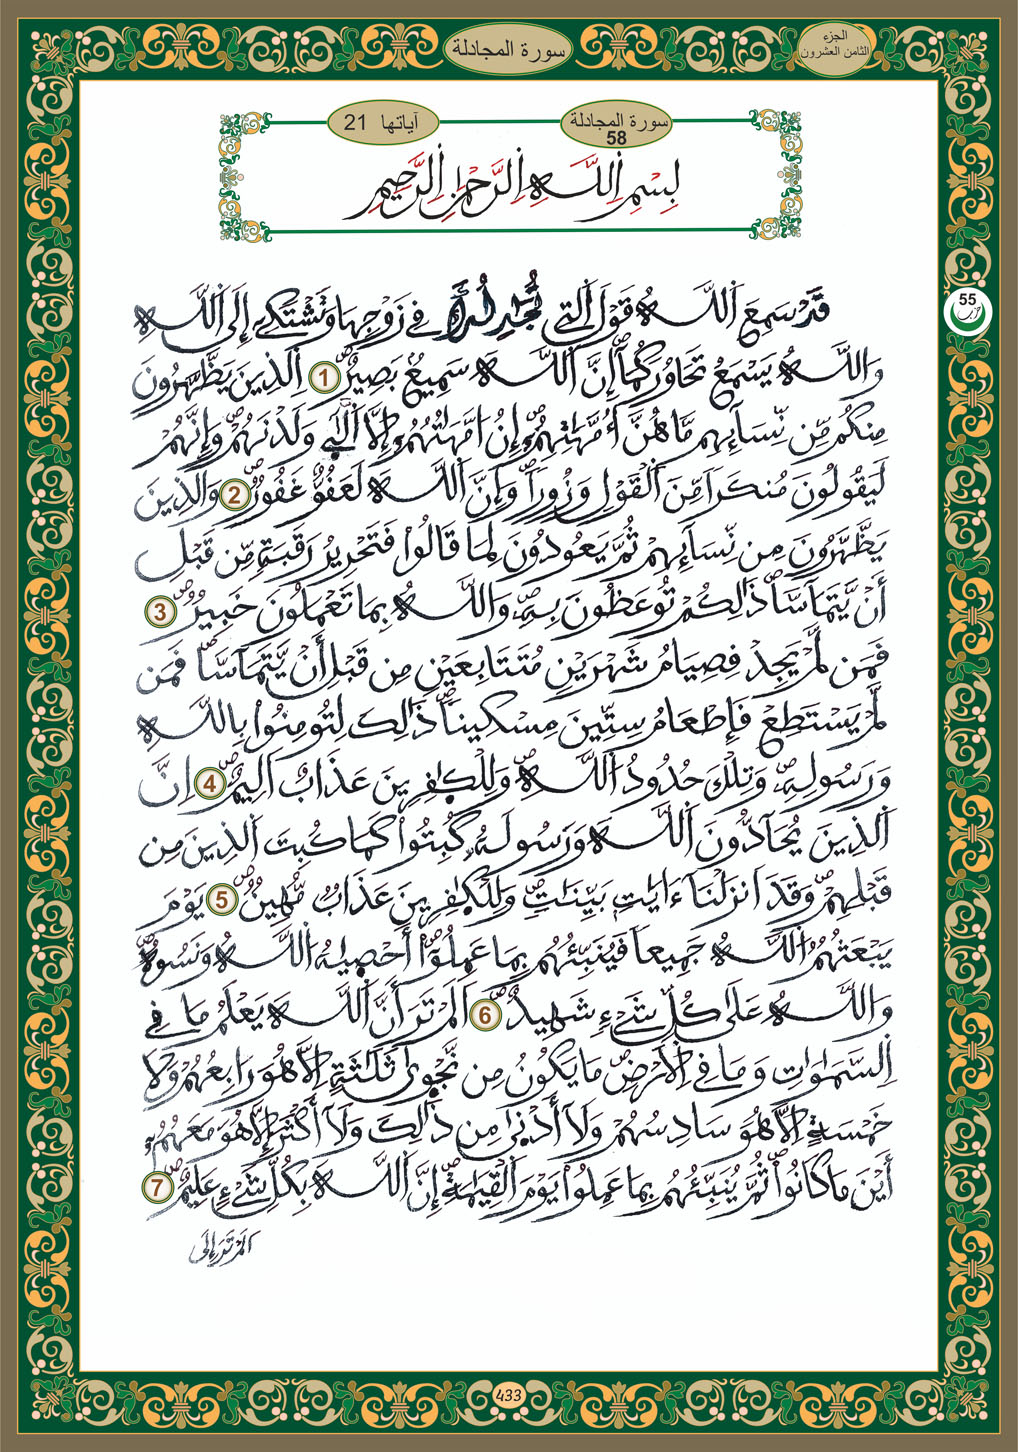 سورة المجادلة
الجزء
الثامن العشرون
سورة المجادلة
58
آياتها 21
بِسْمِ اِ۬للَّهِ اِ۬لرَّحْمَٰنِ اِ۬لرَّحِيمِ
55
حزب
قَدْ سَمِعَ اَ۬للَّهُ قَوْلَ اَ۬لتِے تُجَٰدِلُكَ فِے زَوْجِهَا وَتَشْتَكِےٓ إِلَى اَ۬للَّهِ
وَاللَّهُ يَسْمَعُ تَحَاوُرَكُمَآ إِنَّ اَ۬للَّهَ سَمِيعُۢ بَصِيرٌ 1 اِ۬لذِينَ يَظَّهَّرُونَ
مِنكُم مِّن نِّسَآئِهِم مَّا هُنَّ أُمَّهَٰتِهِمُۥٓ إِنُ ا۟مَّهَٰتُهُمُۥٓ إِلَّا اَ۬لَّٰٓے وَلَدْنَهُمْ وَإِنَّهُمْ
لَيَقُولُونَ مُنكَراٗ مِّنَ اَ۬لْقَوْلِ وَزُوراٗ وَإِنَّ اَ۬للَّهَ لَعَفُوٌّ غَفُورٌ 2 وَالذِينَ
يَظَّهَّرُونَ مِن نِّسَآئِهِمْ ثُمَّ يَعُودُونَ لِمَا قَالُوا۟ فَتَحْرِيرُ رَقَبَةٖ مِّن قَبْلِ
أَنْ يَّتَمَآسَّا ذَٰلِكُمْ تُوعَظُونَ بِهِۦ وَاللَّهُ بِمَا تَعْمَلُونَ خَبِيرٌ 3
فَمَن لَّمْ يَجِدْ فَصِيَامُ شَهْرَيْنِ مُتَتَابِعَيْنِ مِن قَبْلِ أَنْ يَّتَمَآسَّا فَمَن
لَّمْ يَسْتَطِعْ فَإِطْعَامُ سِتِّينَ مِسْكِيناٗ ذَٰلِكَ لِتُومِنُوا۟ بِاللَّهِ
وَرَسُولِهِۦ وَتِلْكَ حُدُودُ اُ۬للَّهِ وَلِلْكَٰفِرِينَ عَذَابٌ اَلِيمٌ 4 اِنَّ
اَ۬لذِينَ يُحَآدُّونَ اَ۬للَّهَ وَرَسُولَهُۥ كُبِتُوا۟ كَمَا كُبِتَ اَ۬لذِينَ مِن
قَبْلِهِمْ وَقَدَ اَنزَلْنَآ ءَايَٰتِۢ بَيِّنَٰتٖ وَلِلْكَٰفِرِينَ عَذَابٌ مُّهِينٌ 5 يَوْمَ
يَبْعَثُهُمُ اُ۬للَّهُ جَمِيعاٗ فَيُنَبِّئُهُم بِمَا عَمِلُوٓا۟ أَحْصَيٰهُ اُ۬للَّهُ وَنَسُوهُ
وَاللَّهُ عَلَىٰ كُلِّ شَےْءٖ شَهِيدٌ 6 اَلَمْ تَرَ أَنَّ اَ۬للَّهَ يَعْلَمُ مَا فِے
اِ۬لسَّمَٰوَٰتِ وَمَا فِے اِ۬لَارْضِ مَا يَكُونُ مِن نَّجْوَىٰ ثَلَٰثَةٍ اِلَّا هُوَ رَابِعُهُمْ وَلَا
خَمْسَةٍ اِلَّا هُوَ سَادِسُهُمْ وَلَآ أَدْنَىٰ مِن ذَٰلِكَ وَلَآ أَكْثَرَ إِلَّا هُوَ مَعَهُمُۥٓ
أَيْنَ مَا كَانُوا۟ ثُمَّ يُنَبِّئُهُم بِمَا عَمِلُوا۟ يَوْمَ اَ۬لْقِيَٰمَةِ إِنَّ اَ۬للَّهَ بِكُلِّ شَےْءٍ عَلِيمٌ 7
اَلَمْ تَرَ إِلَى
433